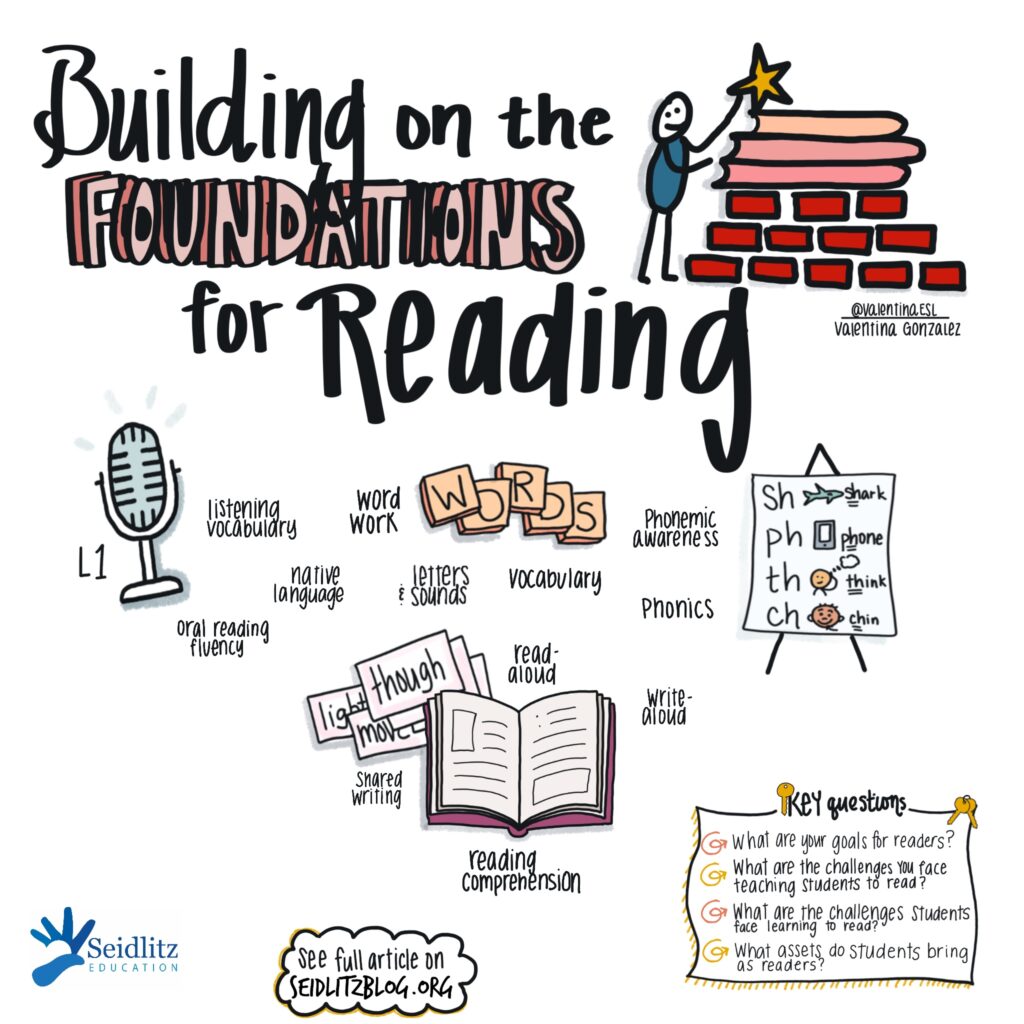 Building on the
FOUNDATIONS
for Reading
@ValentinaESL
Valentina Gonzalez
L1
listening
vocabulary
word
work
WORDS
Phonemic
awareness
native
language
letters
& sounds
vocabulary
Phonics
oral reading
fluency
Sh shark
ph phone
th think
ch chin
read-
aloud
write-
aloud
though
light
move
shared
writing
reading
comprehension
KEY questions
What are your goals for readers?
What are the challenges you face
teaching students to read?
What are the challenges students
face learning to read?
What assets do students bring
as readers?
Seidlitz
EDUCATION
See full article on
SEIDLITZBLOG.ORG